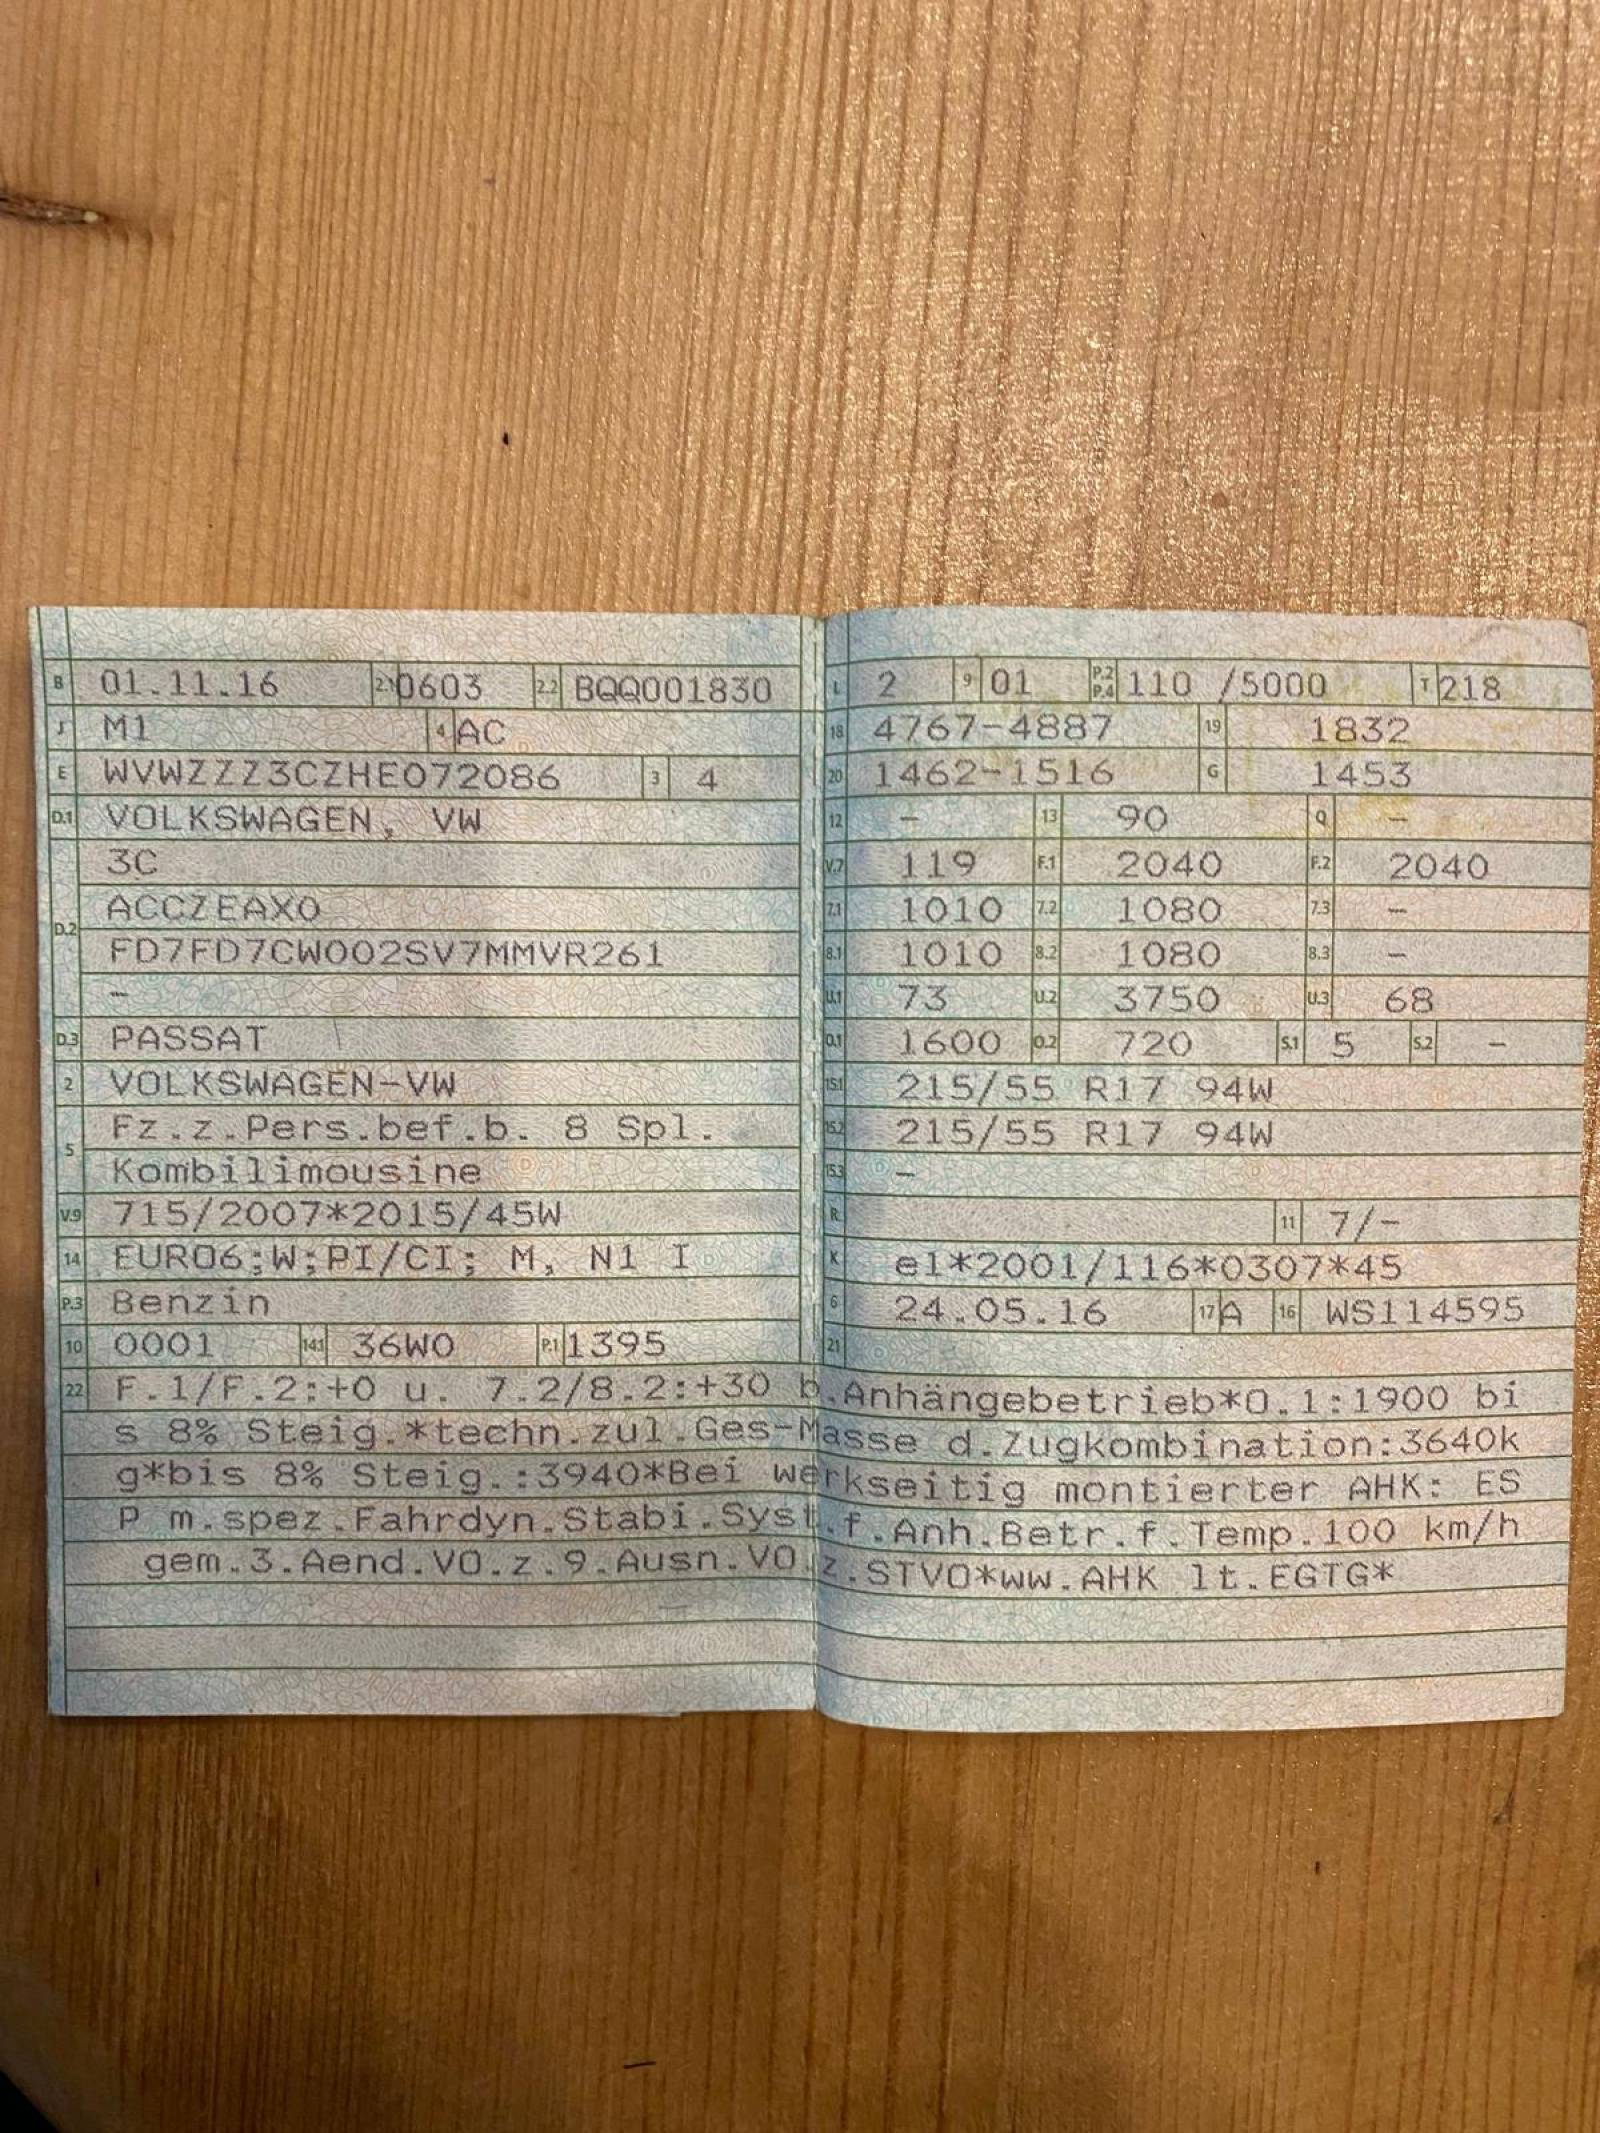 B 01.11.16 2.1 0603 2.2 BQQ001830
J M1 4 AC
E WVWZZZ3CZHE072086 3 4
D.1 VOLKSWAGEN, VW
3C
D.2 ACCZEAX0
FD7FD7CW002SV7MMVR261
–
D.3 PASSAT
2 VOLKSWAGEN-VW
5 Fz.z.Pers.bef.b. 8 Spl.
Kombilimousine
V.9 715/2007*2015/45W
14 EURO6;W;PI/CI; M, N1 I
P.3 Benzin
10 0001 14.1 36W0 P.1 1395
L 2 9 01 P.2 P.4 110 /5000 T 218
18 4767-4887 19 1832
20 1462-1516 G 1453
12 – 13 90 Q –
V.7 119 F.1 2040 F.2 2040
7.1 1010 7.2 1080 7.3 –
8.1 1010 8.2 1080 8.3 –
U.1 73 U.2 3750 U.3 68
O.1 1600 O.2 720 S.1 5 S.2 –
15.1 215/55 R17 94W
15.2 215/55 R17 94W
15.3 –
R 11 7/–
K e1*2001/116*0307*45
6 24.05.16 17 A 16 WS114595
21
22 F.1/F.2:+0 u. 7.2/8.2:+30 b.Anhängebetrieb*O.1:1900 bi
s 8% Steig.*techn.zul.Ges-Masse d.Zugkombination:3640k
g*bis 8% Steig.:3940*Bei werkseitig montierter AHK: ES
P m.spez.Fahrdyn.Stabi.Syst.f.Anh.Betr.f.Temp.100 km/h
gem.3.Aend.VO.z.9.Ausn.VO.z.STVO*ww.AHK lt.EGTG*